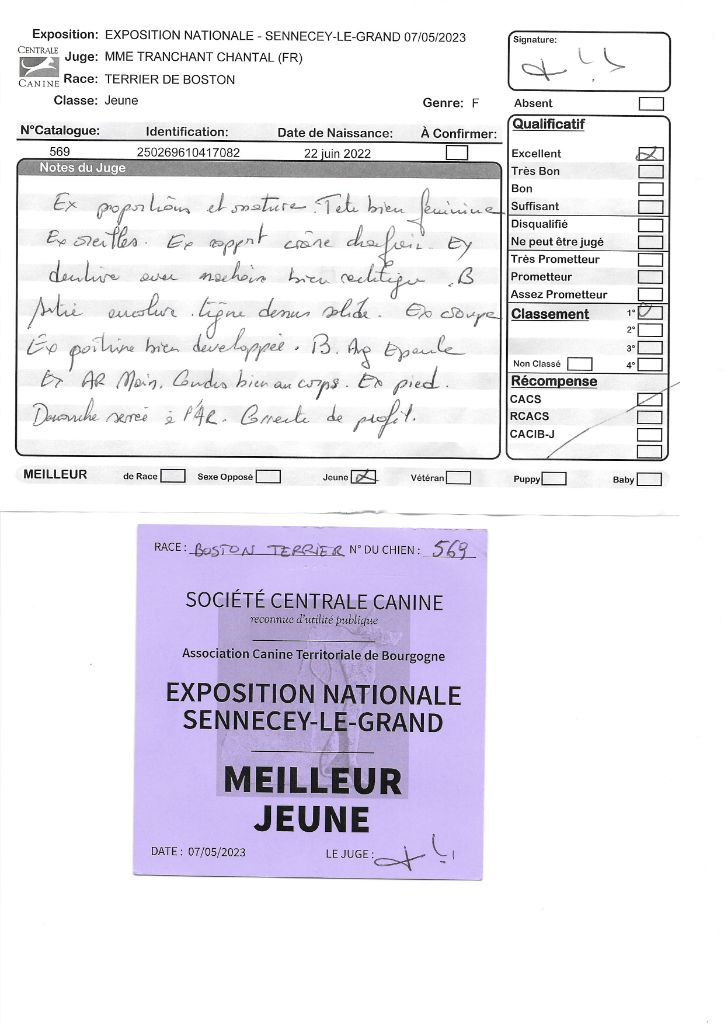 Exposition: EXPOSITION NATIONALE - SENNECEY-LE-GRAND 07/05/2023
CENTRALE CANINE
Juge: MME TRANCHANT CHANTAL (FR)
Race: TERRIER DE BOSTON
Classe: Jeune
Genre: F
Signature:
Absent
N°Catalogue: Identification: Date de Naissance: À Confirmer:
569 250269610417082 22 juin 2022
Notes du Juge
Ex proportions et ossature. Tete bien feminine
Ex oreilles. Ex rapport crâne chanfrein. Ex
denture avec machoire bien . B
encolure. ligne dessus solide. Ex croupe
Ex poitrine bien developpée. B. Ang Epaule
Ex AR Main. Coudes bien au corps. Ex pied.
Demarche serrée à l'AR. Correcte de profil.
Qualificatif
Excellent
Très Bon
Bon
Suffisant
Disqualifié
Ne peut être jugé
Très Prometteur
Prometteur
Assez Prometteur
Classement 1°
2°
3°
Non Classé 4°
Récompense
CACS
RCACS
CACIB-J
MEILLEUR de Race Sexe Opposé Jeune Vétéran Puppy Baby
RACE: BOSTON TERRIER N° DU CHIEN: 569
SOCIÉTÉ CENTRALE CANINE
reconnue d'utilité publique
Association Canine Territoriale de Bourgogne
EXPOSITION NATIONALE
SENNECEY-LE-GRAND
MEILLEUR
JEUNE
DATE : 07/05/2023 LE JUGE :